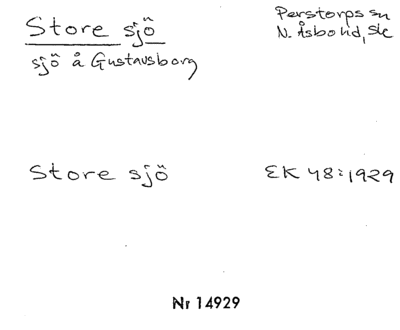 Store sjö
Perstorps sn
N. Åsbo hd, Sk
sjö å Gustavsborg
Store sjö
EK 48:1929
Nr 14929